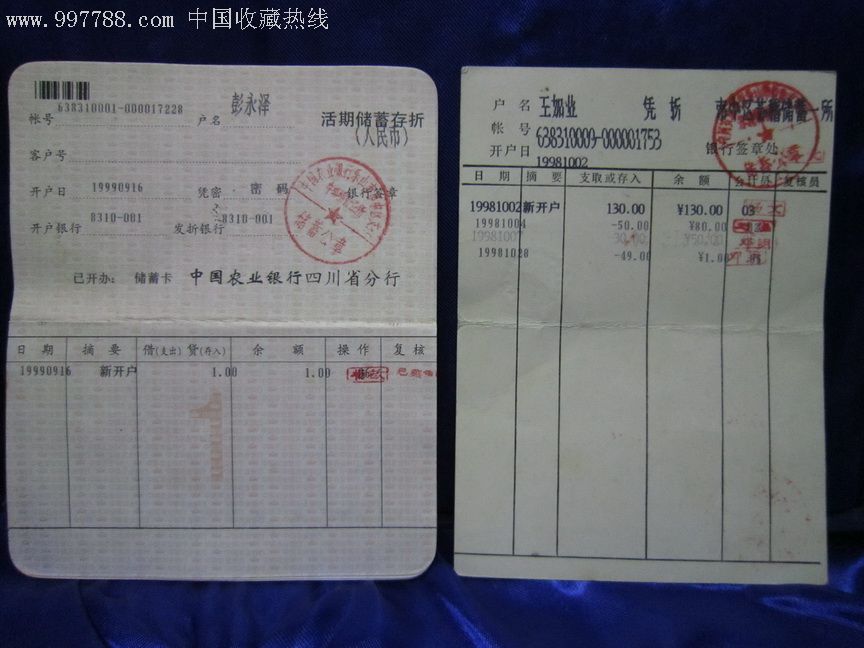 www.997788.com 中国收藏热线
638310001-000017228
帐号 户名 彭永泽 活期储蓄存折
(人民币)
客户号
开户日 19990916 凭密 密码 银行签章
开户银行 8310-001 发折银行 8310-001
储蓄公章
已开办: 储蓄卡 中国农业银行四川省分行
日期 摘要 借(支出) 贷(存入) 余额 操作 复核
19990916 新开户 1.00 1.00
户名 王加业 凭折
帐号 638310009-000001753 银行签章处
开户日 19981002
日期 摘要 支取或存入 余额 会计员 复核员
19981002 新开户 130.00 ¥130.00 03
19981004 -50.00 ¥80.00
19981007 30.00 ¥50.00
19981028 -49.00 ¥1.00